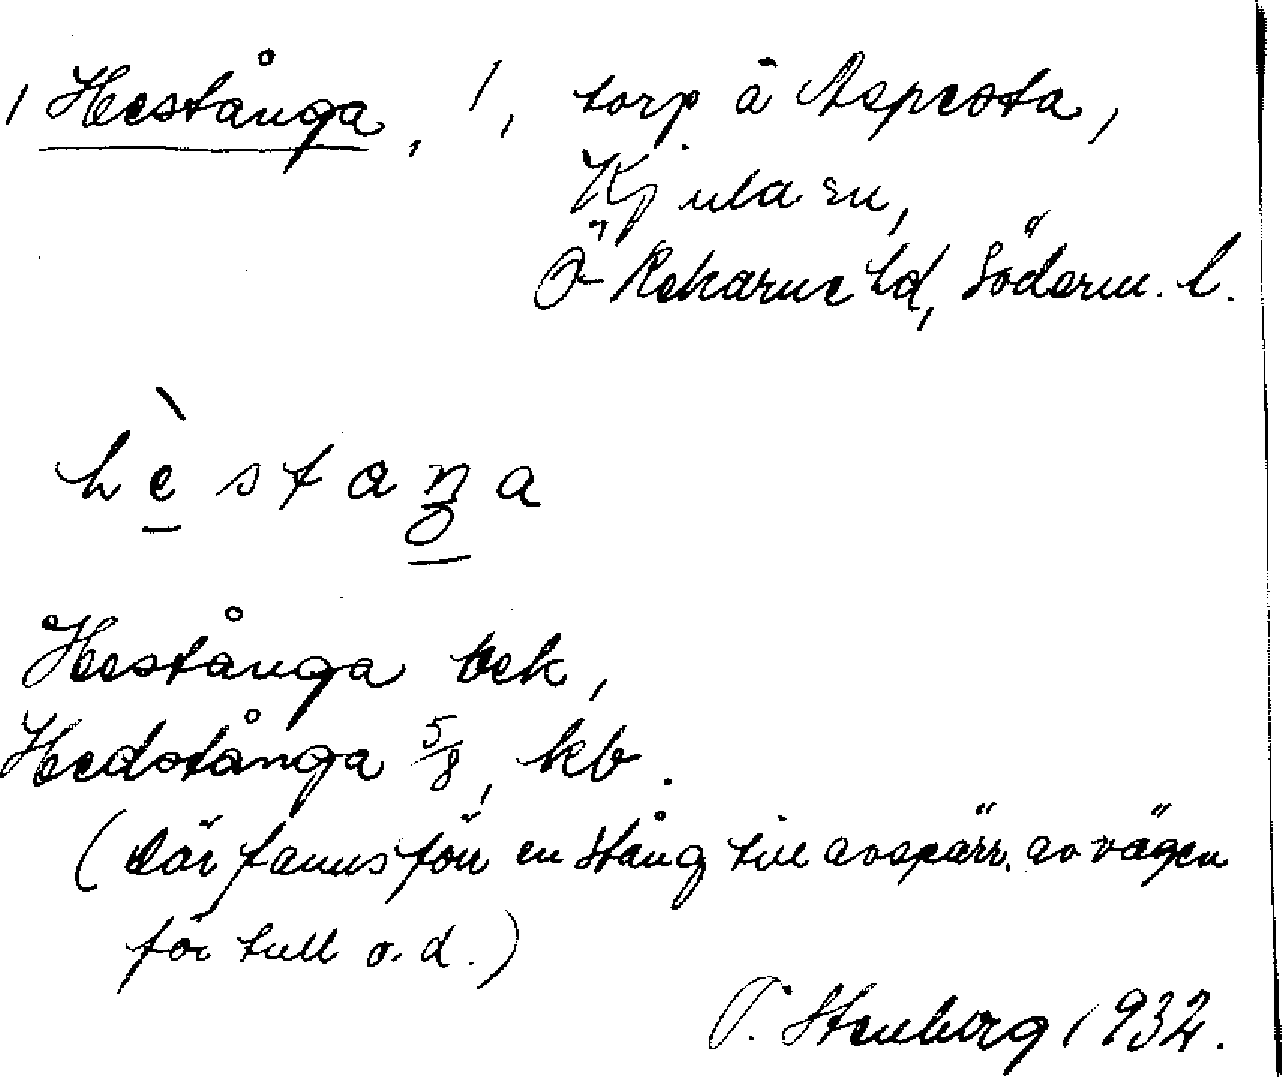 Hestånga, /, torp å Aspesta,
Kjula sn,
Ö Rekarne hd, Söderm. l.
hèstaŋa
Hestånga ek,
Hedstånga 5/8, kb.
(där fanns förr en stång till avspärr. av vägen
för tull o. d.)
T. Stenberg 1932.